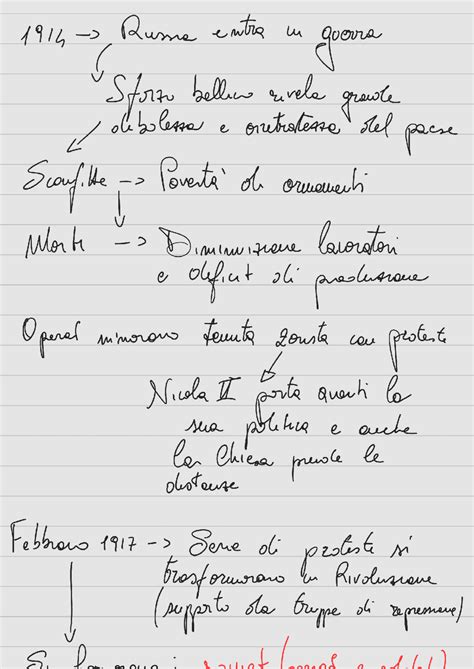 1914 -> Russia entra in guerra
Sforzo bellico rivela grande
debolezza e arretratezza del paese
Sconfitte -> Povertà di armamenti
Morti -> Diminuizione lavoratori
e deficit di produzione
Operai minarono tenuta zarista con proteste
Nicola II porta avanti la
sua politica e anche
la Chiesa prende le
distanze
Febbraio 1917 -> Serie di proteste si
trasformarono in Rivoluzione
(supporto da truppe di repressione)
Si formano i soviet (operai e soldati)